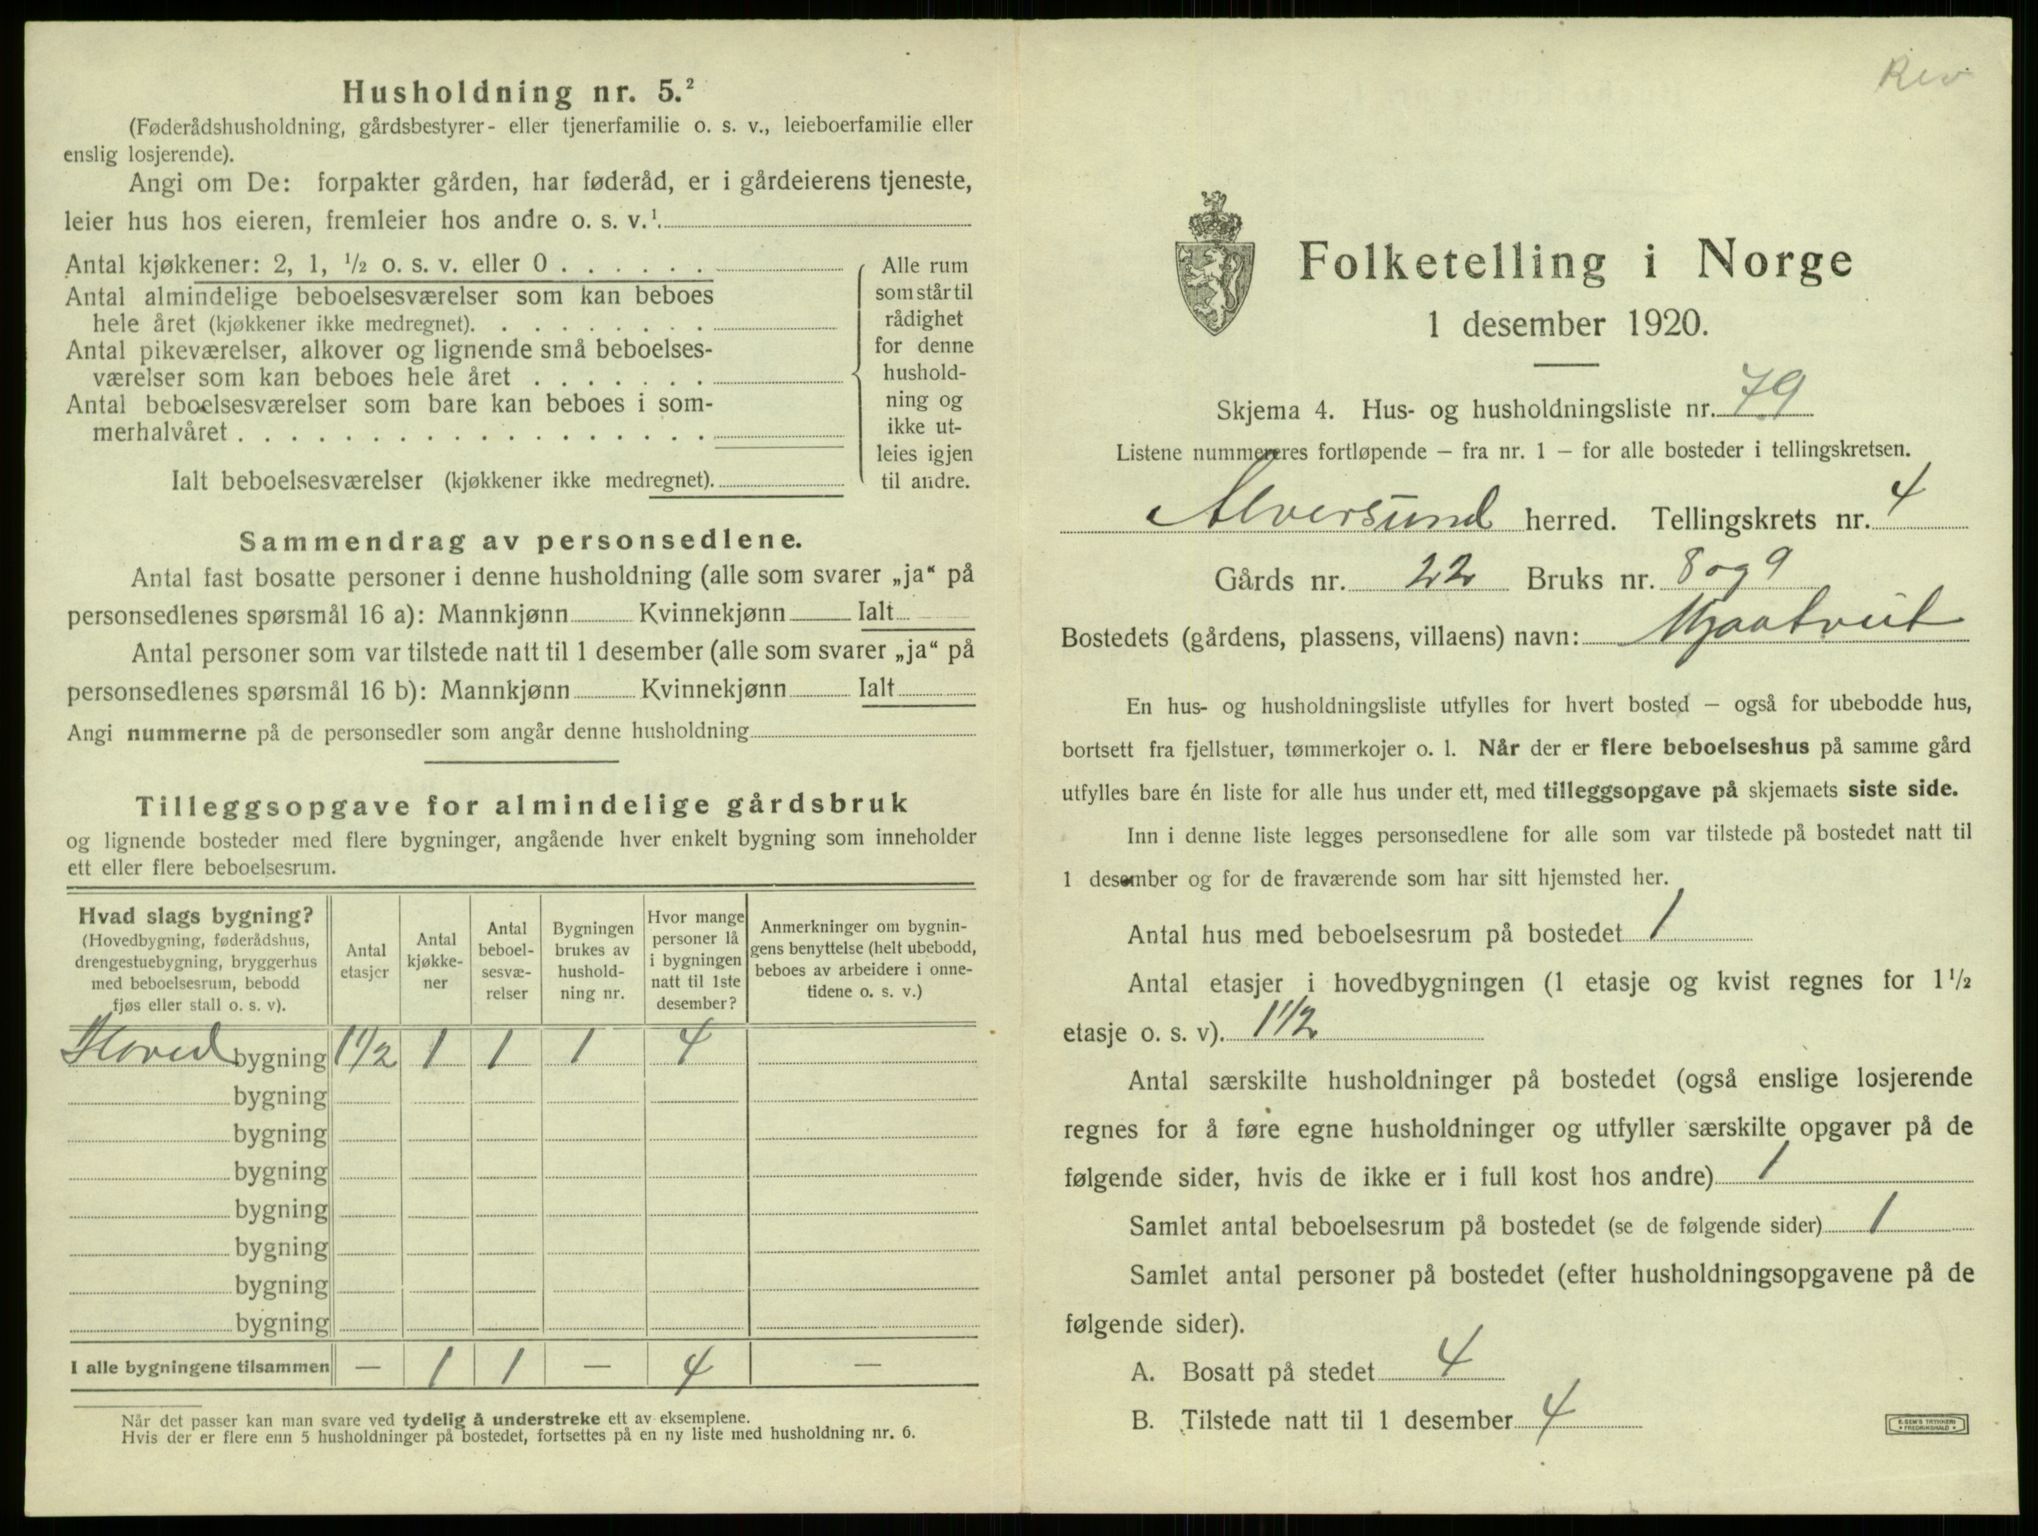 Husholdning nr. 5.²
(Føderådshusholdning, gårdsbestyrer- eller tjenerfamilie o. s. v., leieboerfamilie eller
enslig losjerende).
Angi om De: forpakter gården, har føderåd, er i gårdeierens tjeneste,
leier hus hos eieren, fremleier hos andre o. s. v.¹
Antal kjøkkener: 2, 1, ½ o. s. v. eller 0
Antal almindelige beboelsesværelser som kan beboes
hele året (kjøkkener ikke medregnet).
Antal pikeværelser, alkover og lignende små beboelses-
værelser som kan beboes hele året
Antal beboelsesværelser som bare kan beboes i som-
merhalvåret
Ialt beboelsesværelser (kjøkkener ikke medregnet).
Alle rum
som står til
rådighet
for denne
hushold-
ning og
ikke ut-
leies igjen
til andre.
Sammendrag av personsedlene.
Antal fast bosatte personer i denne husholdning (alle som svarer „ja“ på
personsedlenes spørsmål 16 a): Mannkjønn Kvinnekjønn Ialt
Antal personer som var tilstede natt til 1 desember (alle som svarer „ja“ på
personsedlenes spørsmål 16 b): Mannkjønn Kvinnekjønn Ialt
Angi nummerne på de personsedler som angår denne husholdning
Tilleggsopgave for almindelige gårdsbruk
og lignende bosteder med flere bygninger, angående hver enkelt bygning som inneholder
ett eller flere beboelsesrum.
Hvad slags bygning?
(Hovedbygning, føderådshus,
drengestuebygning, bryggerhus
med beboelsesrum, bebodd
fjøs eller stall o. s. v).
Antal
etasjer
Antal
kjøkke-
ner
Antal
beboel-
sesvæ-
relser
Bygningen
brukes av
hushold-
ning nr.
Hvor mange
personer lå
i bygningen
natt til 1ste
desember?
Anmerkninger om bygnin-
gens benyttelse (helt ubebodd,
beboes av arbeidere i onne-
tidene o. s. v.)
Hoved bygning 1½ 1 1 1 4
bygning
bygning
bygning
bygning
bygning
bygning
bygning
I alle bygningene tilsammen — 1 1 — 4 —
Når det passer kan man svare ved tydelig å understreke ett av eksemplene.
Hvis der er flere enn 5 husholdninger på bostedet, fortsettes på en ny liste med husholdning nr. 6.
Rev
Folketelling i Norge
1 desember 1920.
Skjema 4. Hus- og husholdningsliste nr. 79
Listene nummereres fortløpende – fra nr. 1 – for alle bosteder i tellingskretsen.
Alversund herred. Tellingskrets nr. 4
Gårds nr. 22 Bruks nr. 8 og 9
Bostedets (gårdens, plassens, villaens) navn: Mjaatveit
En hus- og husholdningsliste utfylles for hvert bosted – også for ubebodde hus,
bortsett fra fjellstuer, tømmerkojer o. l. Når der er flere beboelseshus på samme gård
utfylles bare én liste for alle hus under ett, med tilleggsopgave på skjemaets siste side.
Inn i denne liste legges personsedlene for alle som var tilstede på bostedet natt til
1 desember og for de fraværende som har sitt hjemsted her.
Antal hus med beboelsesrum på bostedet 1
Antal etasjer i hovedbygningen (1 etasje og kvist regnes for 1½
etasje o. s. v). 1½
Antal særskilte husholdninger på bostedet (også enslige losjerende
regnes for å føre egne husholdninger og utfyller særskilte opgaver på de
følgende sider, hvis de ikke er i full kost hos andre) 1
Samlet antal beboelsesrum på bostedet (se de følgende sider) 1
Samlet antal personer på bostedet (efter husholdningsopgavene på de
følgende sider).
A. Bosatt på stedet 4
B. Tilstede natt til 1 desember 4
E. SEM'S TRYKKERI
FREDRIKSHALD